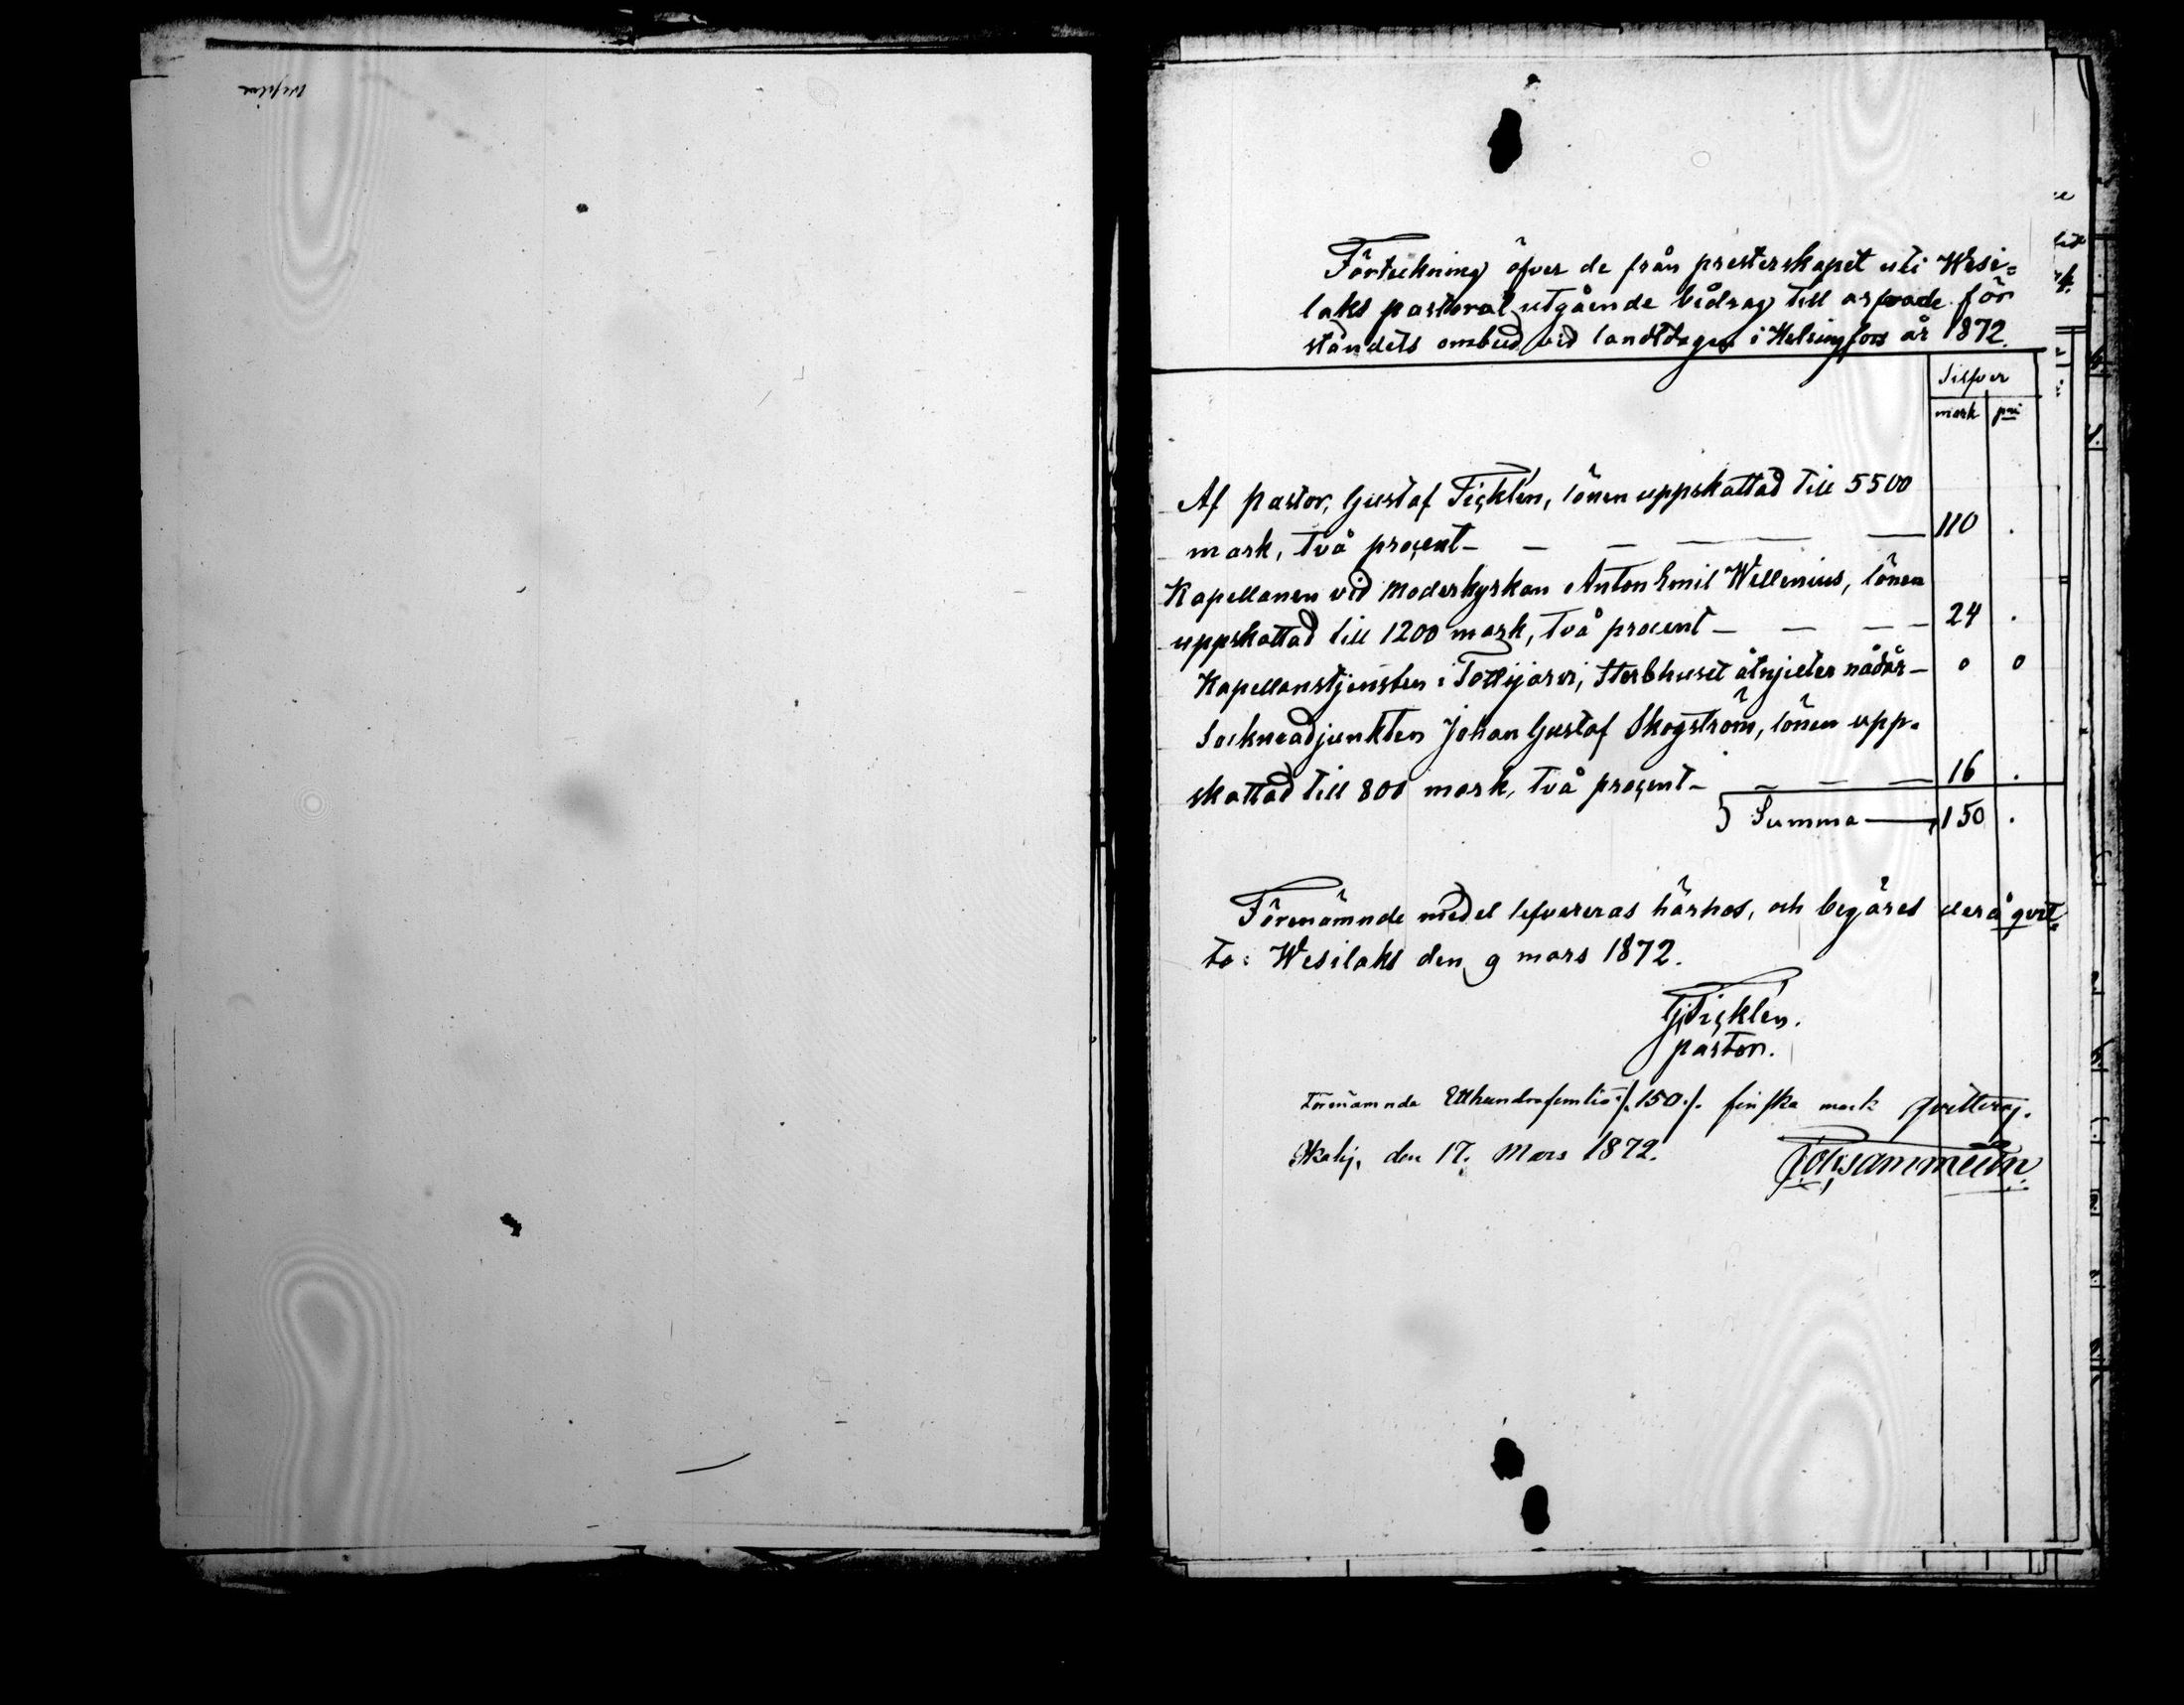 Förteckning öfver de från presterskapet uti Wesi=
laks pastorat utgående bidrag till arfvode för
ståndets ombud vid landtdagen i Helsingfors år 1872.
Silfver
mark pni
Af pastor, Gustaf Ticklén, lönen uppskattad till 5500
mark, två procent — — — — 110 .
Kapellanen vid moderkyrkan Anton Emil Wellenius, lönen
uppskattad till 1200 mark, två procent — — — — 24 .
Kapellanstjensten i Tottijärvi, Sterbhuset åtnjuter nådår — 0 0
Sockneadjunkten Johan Gustaf Skogström, lönen upp=
skattad till 800 mark, två procent — — — — 16 .
Summa — 150 .
Förenämnde medel lefvereras härhos, och begäres derå qvit=
to: Wesilaks den 9 mars 1872.
G Ticklén.
pastor.
Förenämnda Etthundrafemtio ./. 150 ./. finska mark qvitteras.
den 17. Mars 1872.